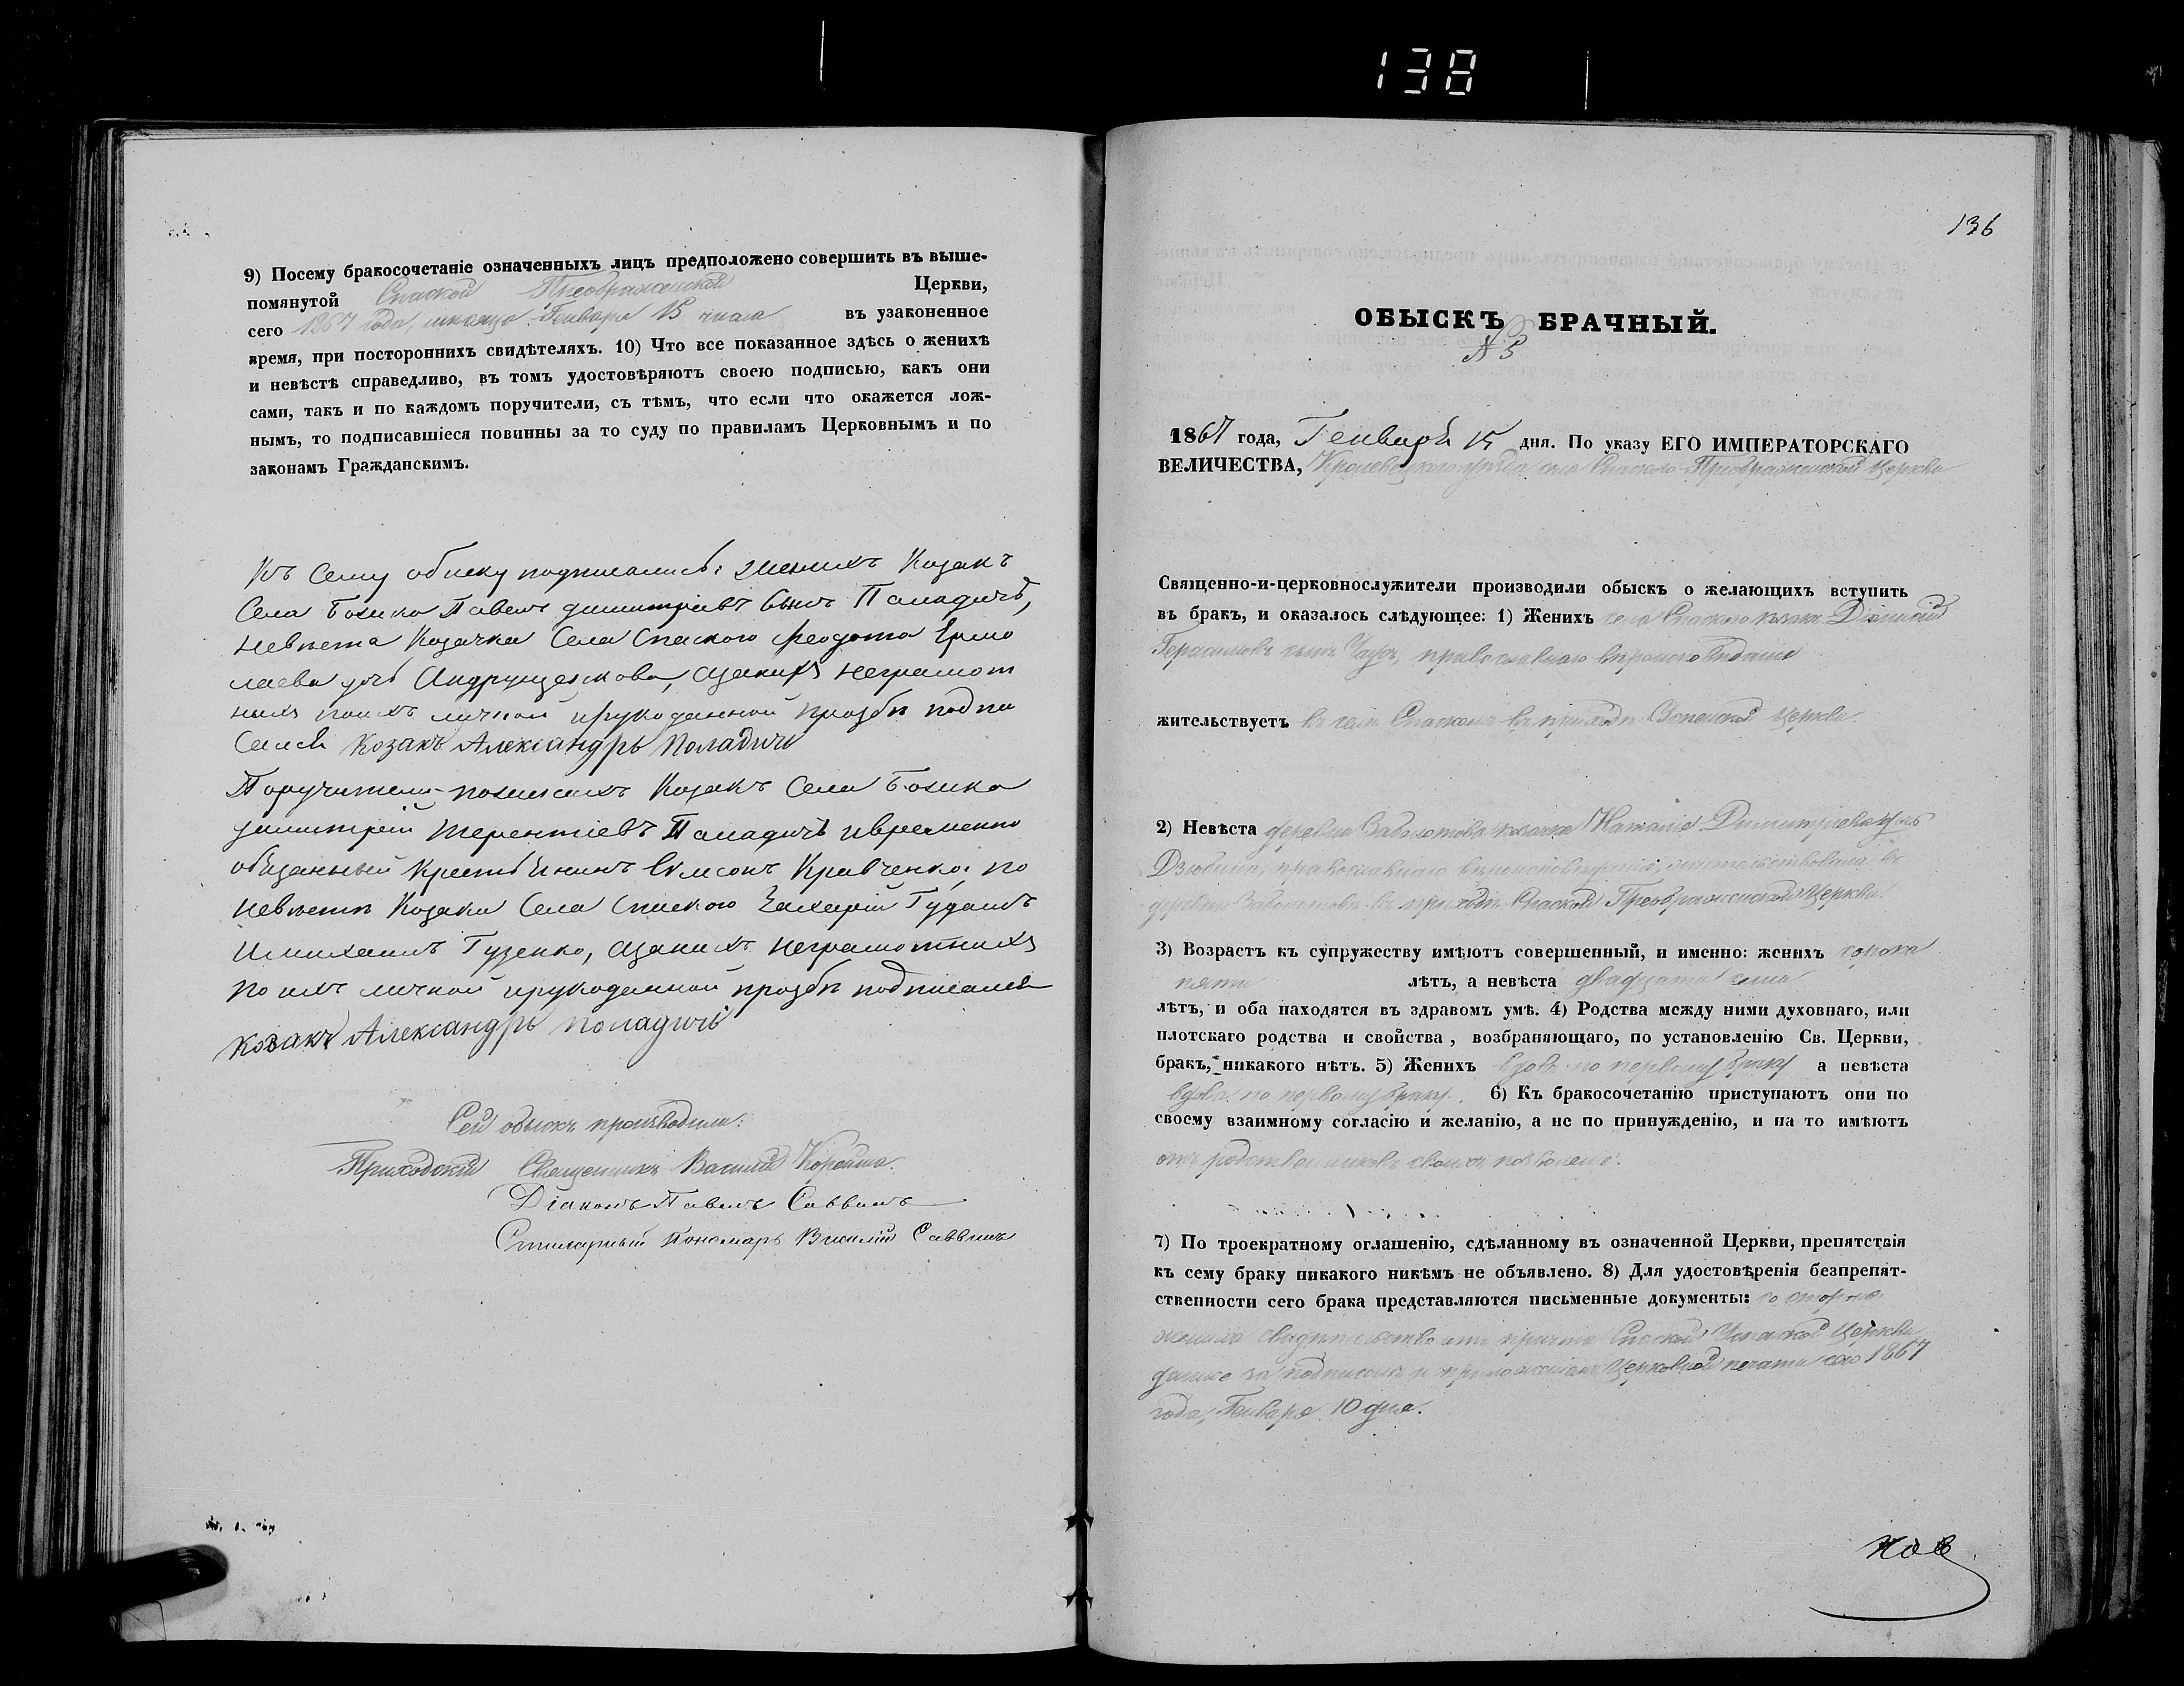 138
9) Посему бракосочетаніе означенныхъ лицъ предположено совершить въ выше-
помянутой Спаской Преображенской Церкви,
сего 1867 года, мѣсяца Генваря 15 числа въ узаконенное
время, при постороннихъ свидѣтеляхъ. 10) Что все показанное здѣсь о женихѣ
и невѣстѣ справедливо, въ томъ удостовѣряютъ своею подписью, какъ они
сами, такъ и по каждомъ поручители, съ тѣмъ, что если что окажется лож-
нымъ, то подписавшіеся повинны за то суду по правиламъ Церковнымъ и по
законамъ Гражданскимъ.
Къ Сему обыску подписались: женихъ Козакъ
Села Павелъ димитріевъ Сынъ Паладичъ,
невѣста Козачка Села Спаского Феодота Ермо
лаева дочь Андрущенкова, азаних неграмот
ныхъ поихъ личной ирукоданной прозбѣ подпи
Козакъ Александръ Поладичь
Поручители по женихъ Козакъ Села
димитрій терентіевъ Паладичъ ивременно
обязанный Крестьянинъ Кравченко, по
невѣстѣ Козаки Села Спаского Захарій Гудимъ
Имихаилъ Гузенко, азанихъ неграмотнихъ
по ихъ личной ирукоданной прозбѣ подписался
козакъ Александръ поладичь
Сей обыскъ производили:
Приходскій Священникъ Василій
Діаконъ Павелъ Саввинъ
Пономарь Василій Саввинъ
136
ОБЫСКЪ БРАЧНЫЙ.
№ 5
1867 года, Генваря 15 дня. По указу ЕГО ИМПЕРАТОРСКАГО
ВЕЛИЧЕСТВА, Кролевецкого уѣзда села Спаского Преображенской Церкви
Священно-и-церковнослужители производили обыскъ о желающихъ вступить
въ бракъ, и оказалось слѣдующее: 1) Женихъ села Спаского козакъ
Герасимовъ сынъ православнаго вѣроисповѣданія
жительствуетъ въ селѣ Спаскомъ въ приходѣ Успенской Церкви.
2) Невѣста деревни Заболотова козачка Наталія Димитріева дочь
православнаго вѣроисповѣданія, жительствовала въ
деревнѣ Заболотовѣ въ приходѣ Спаской Преображенской Церкви.
3) Возрастъ къ супружеству имѣютъ совершенный, и именно: женихъ сорока
пяти лѣтъ, а невѣста двадцати семи
лѣтъ, и оба находятся въ здравомъ умѣ. 4) Родства между ними духовнаго, или
плотскаго родства и свойства, возбраняющаго, по установленію Св. Церкви,
бракъ, никакого нѣтъ. 5) Женихъ вдовъ по первому браку а невѣста
вдова по первому браку. 6) Къ бракосочетанію приступаютъ они по
своему взаимному согласію и желанію, а не по принужденію, и на то имѣютъ
отъ родственниковъ своихъ позволеніе.
7) По троекратному оглашенію, сдѣланному въ означенной Церкви, препятствія
къ сему браку никакого никѣмъ не объявлено. 8) Для удостовѣренія безпрепят-
ственности сего брака представляются письменные документы: со стороны
жениха свидѣтельство отъ причта Спаской Успенской Церкви
данное за подписомъ и приложеніемъ Церковной печати сего 1867
года, Генваря 10 дня.